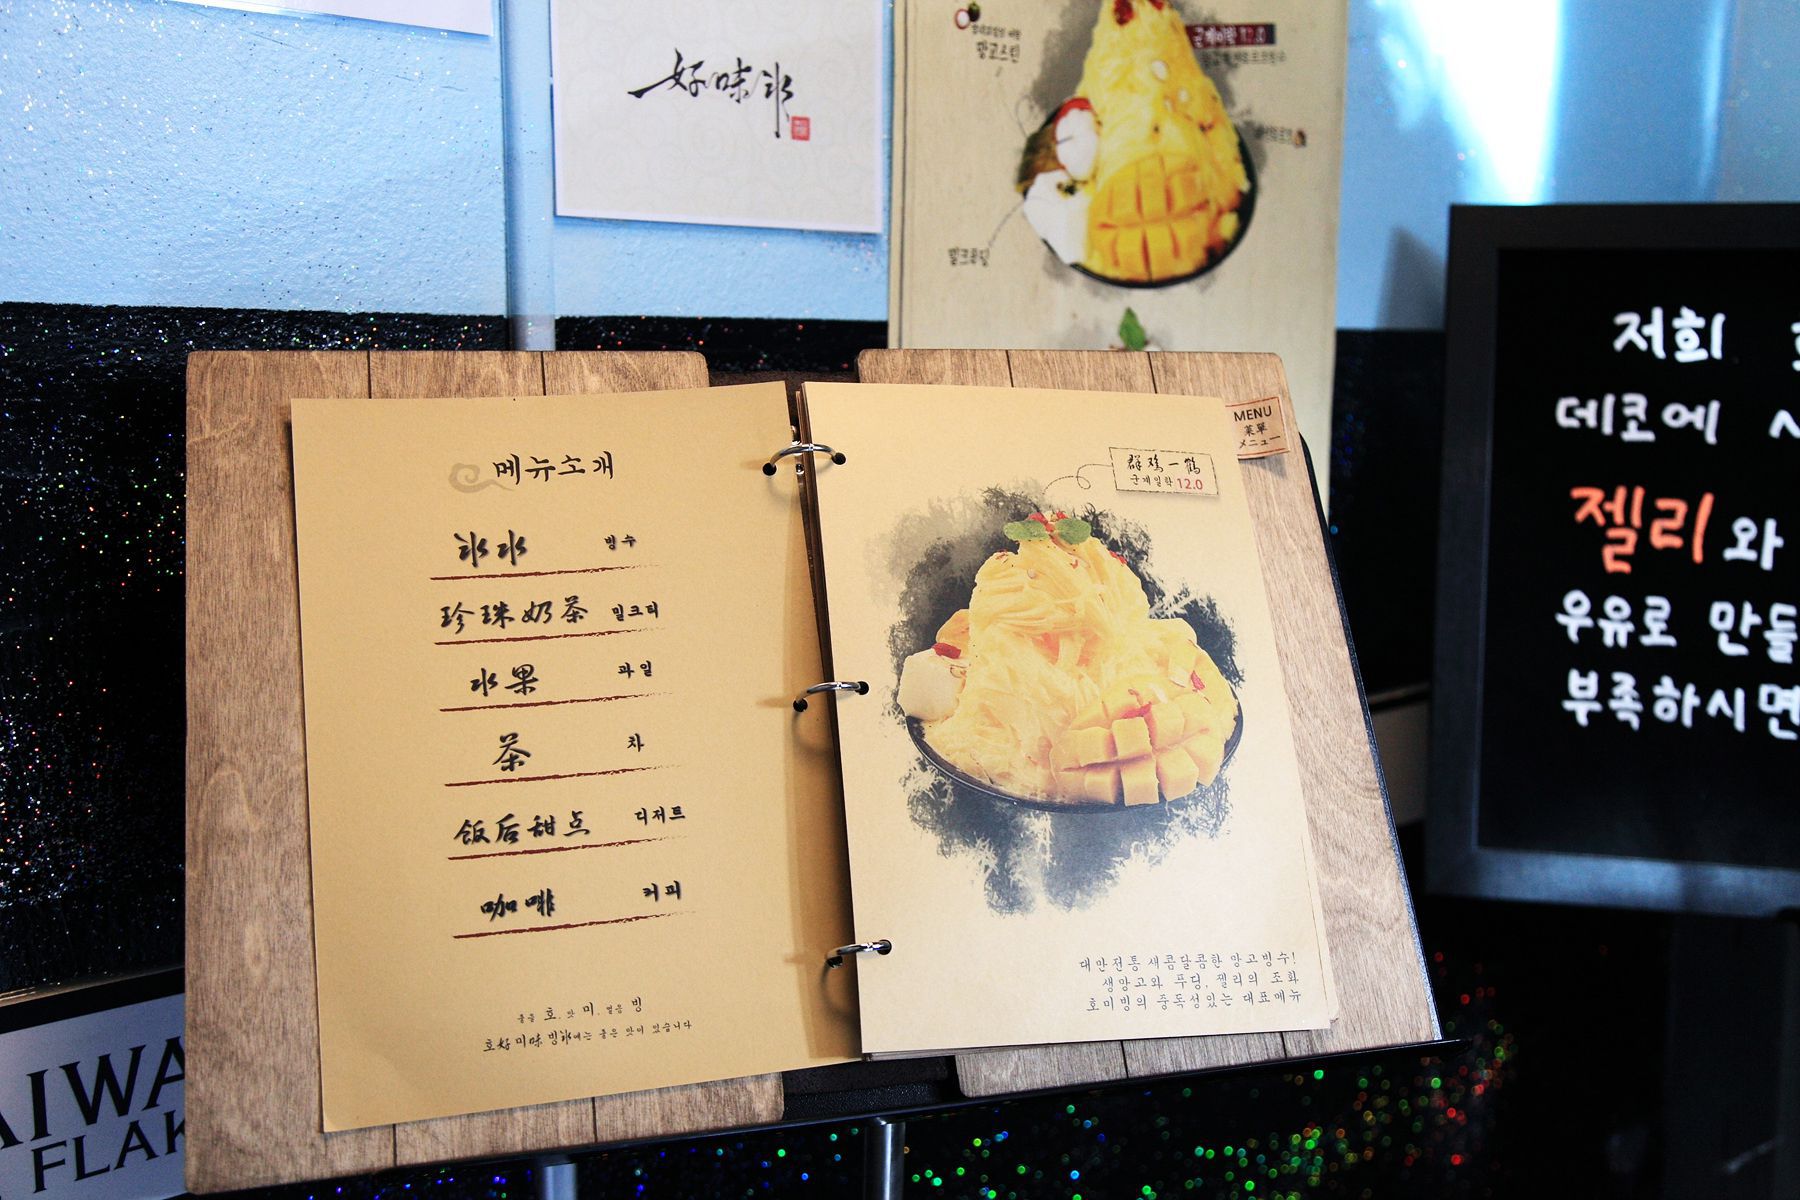 好味氷
망고스틴
군계일학 12.0
밀크푸딩
MENU
菜單
メニュー
메뉴소개
氷水 빙수
珍珠奶茶 밀크티
水果 과일
茶 차
饭后甜点 디저트
咖啡 커피
좋을 호, 맛 미, 얼음 빙
호好미味빙氷에는 좋은 맛이 있습니다
群鸡一鹤
군계일학 12.0
대만전통 새콤달콤한 망고빙수!
생망고와 푸딩, 젤리의 조화
호미빙의 중독성있는 대표메뉴
저희
데코에
젤리와
우유로 만들
부족하시면
AIWA
FLAK